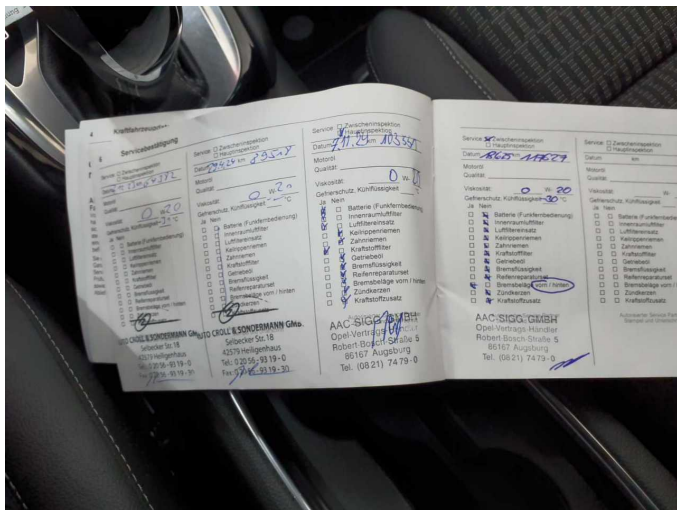 4 Kraftfahrzeug
Servicebestätigung
Service Zwischeninspektion
Hauptinspektion
km 64372
Motoröl
Qualität
Viskosität: 0 W- 20
Gefrierschutz, Kühlflüssigkeit °C
Ja Nein
Batterie (Funkfernbedienung)
Innenraumluftfilter
Luftfiltereinsatz
Keilrippenriemen
Zahnriemen
Kraftstofffilter
Getriebeöl
Bremsflüssigkeit
Reifenreparaturset
Bremsbeläge vorn / hinten
Zündkerzen
Kraftstoffzusatz
AUTO CROLL & SONDERMANN GmbH
Selbecker Str. 18
42579 Heiligenhaus
Tel.: 0 20 56 - 93 19 - 0
Service Zwischeninspektion
Hauptinspektion
Datum km 89518
Motoröl
Qualität
Viskosität: 0 W- 20
Gefrierschutz, Kühlflüssigkeit °C
Ja Nein
Batterie (Funkfernbedienung)
Innenraumluftfilter
Luftfiltereinsatz
Keilrippenriemen
Zahnriemen
Kraftstofffilter
Getriebeöl
Bremsflüssigkeit
Reifenreparaturset
Bremsbeläge vorn / hinten
Zündkerzen
Kraftstoffzusatz
AUTO CROLL & SONDERMANN GmbH
Selbecker Str. 18
42579 Heiligenhaus
Tel.: 0 20 56 - 93 19 - 0
Fax: 0 20 56 - 93 19 - 30
Service Zwischeninspektion
Hauptinspektion
Datum 7.11.24 km 103551
Motoröl
Qualität
Viskosität: 0 W-
Gefrierschutz, Kühlflüssigkeit °C
Ja Nein
Batterie (Funkfernbedienung)
Innenraumluftfilter
Luftfiltereinsatz
Keilrippenriemen
Zahnriemen
Kraftstofffilter
Getriebeöl
Bremsflüssigkeit
Reifenreparaturset
Bremsbeläge vorn / hinten
Zündkerzen
Kraftstoffzusatz
AAC SIGG GMBH
Opel-Vertrags-Händler
Robert-Bosch-Straße 5
86167 Augsburg
Tel. (08 21) 74 79 - 0
Service Zwischeninspektion
Hauptinspektion
Datum 117629
Motoröl
Qualität
Viskosität: 0 W- 20
Gefrierschutz, Kühlflüssigkeit -30 °C
Ja Nein
Batterie (Funkfernbedienung)
Innenraumluftfilter
Luftfiltereinsatz
Keilrippenriemen
Zahnriemen
Kraftstofffilter
Getriebeöl
Bremsflüssigkeit
Reifenreparaturset
Bremsbeläge vorn / hinten
Zündkerzen
Kraftstoffzusatz
AAC SIGG GMBH
Opel-Vertrags-Händler
Robert-Bosch-Straße 5
86167 Augsburg
Tel. (08 21) 74 79 - 0
Service Zwischeninspektion
Hauptinspektion
Datum km
Motoröl
Qualität
Viskosität: W-
Gefrierschutz, Kühlflüssigkeit
Ja Nein
Batterie (Funkfernbedienung)
Innenraumluftfilter
Luftfiltereinsatz
Keilrippenriemen
Zahnriemen
Kraftstofffilter
Getriebeöl
Bremsflüssigkeit
Reifenreparaturset
Bremsbeläge vorn / hinten
Zündkerzen
Kraftstoffzusatz
Autorisierter Service Partner
Stempel und Unterschrift